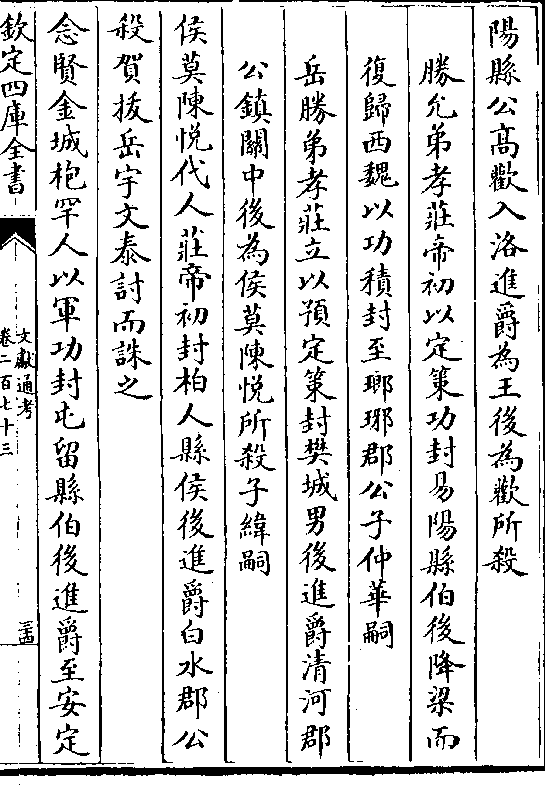 陽縣公高歡入洛進爵為王後為歡所殺
勝允弟孝莊帝初以定策功封易陽縣伯後降梁而
復歸西魏以功積封至瑯琊郡公子仲華嗣
岳勝弟孝莊立以預定策封樊城男後進爵清河郡
公鎮關中後為侯莫陳悅所殺子緯嗣
侯莫陳悅代人莊帝初封柏人縣侯後進爵白水郡公
殺賀拔岳宇文泰討而誅之
念賢金城枹罕人以軍功封屯留縣伯後進爵至安定
欽定四庫全書
文獻通考
卷二百七十三
三十四